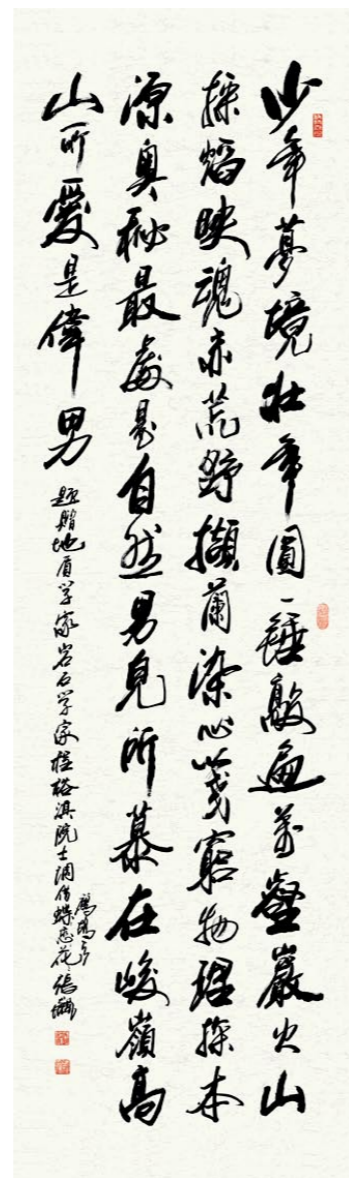 少年夢境壯年圓一錘敲遍萬壑巖火山
探焰映魂赤荒野擷蘭染心箋窮物理探本
源奧秘最處是自然男兒所慕在峻嶺高
山所愛是偉男
题赠地质学家岩石学家程裕淇院士调倚蝶恋花 張